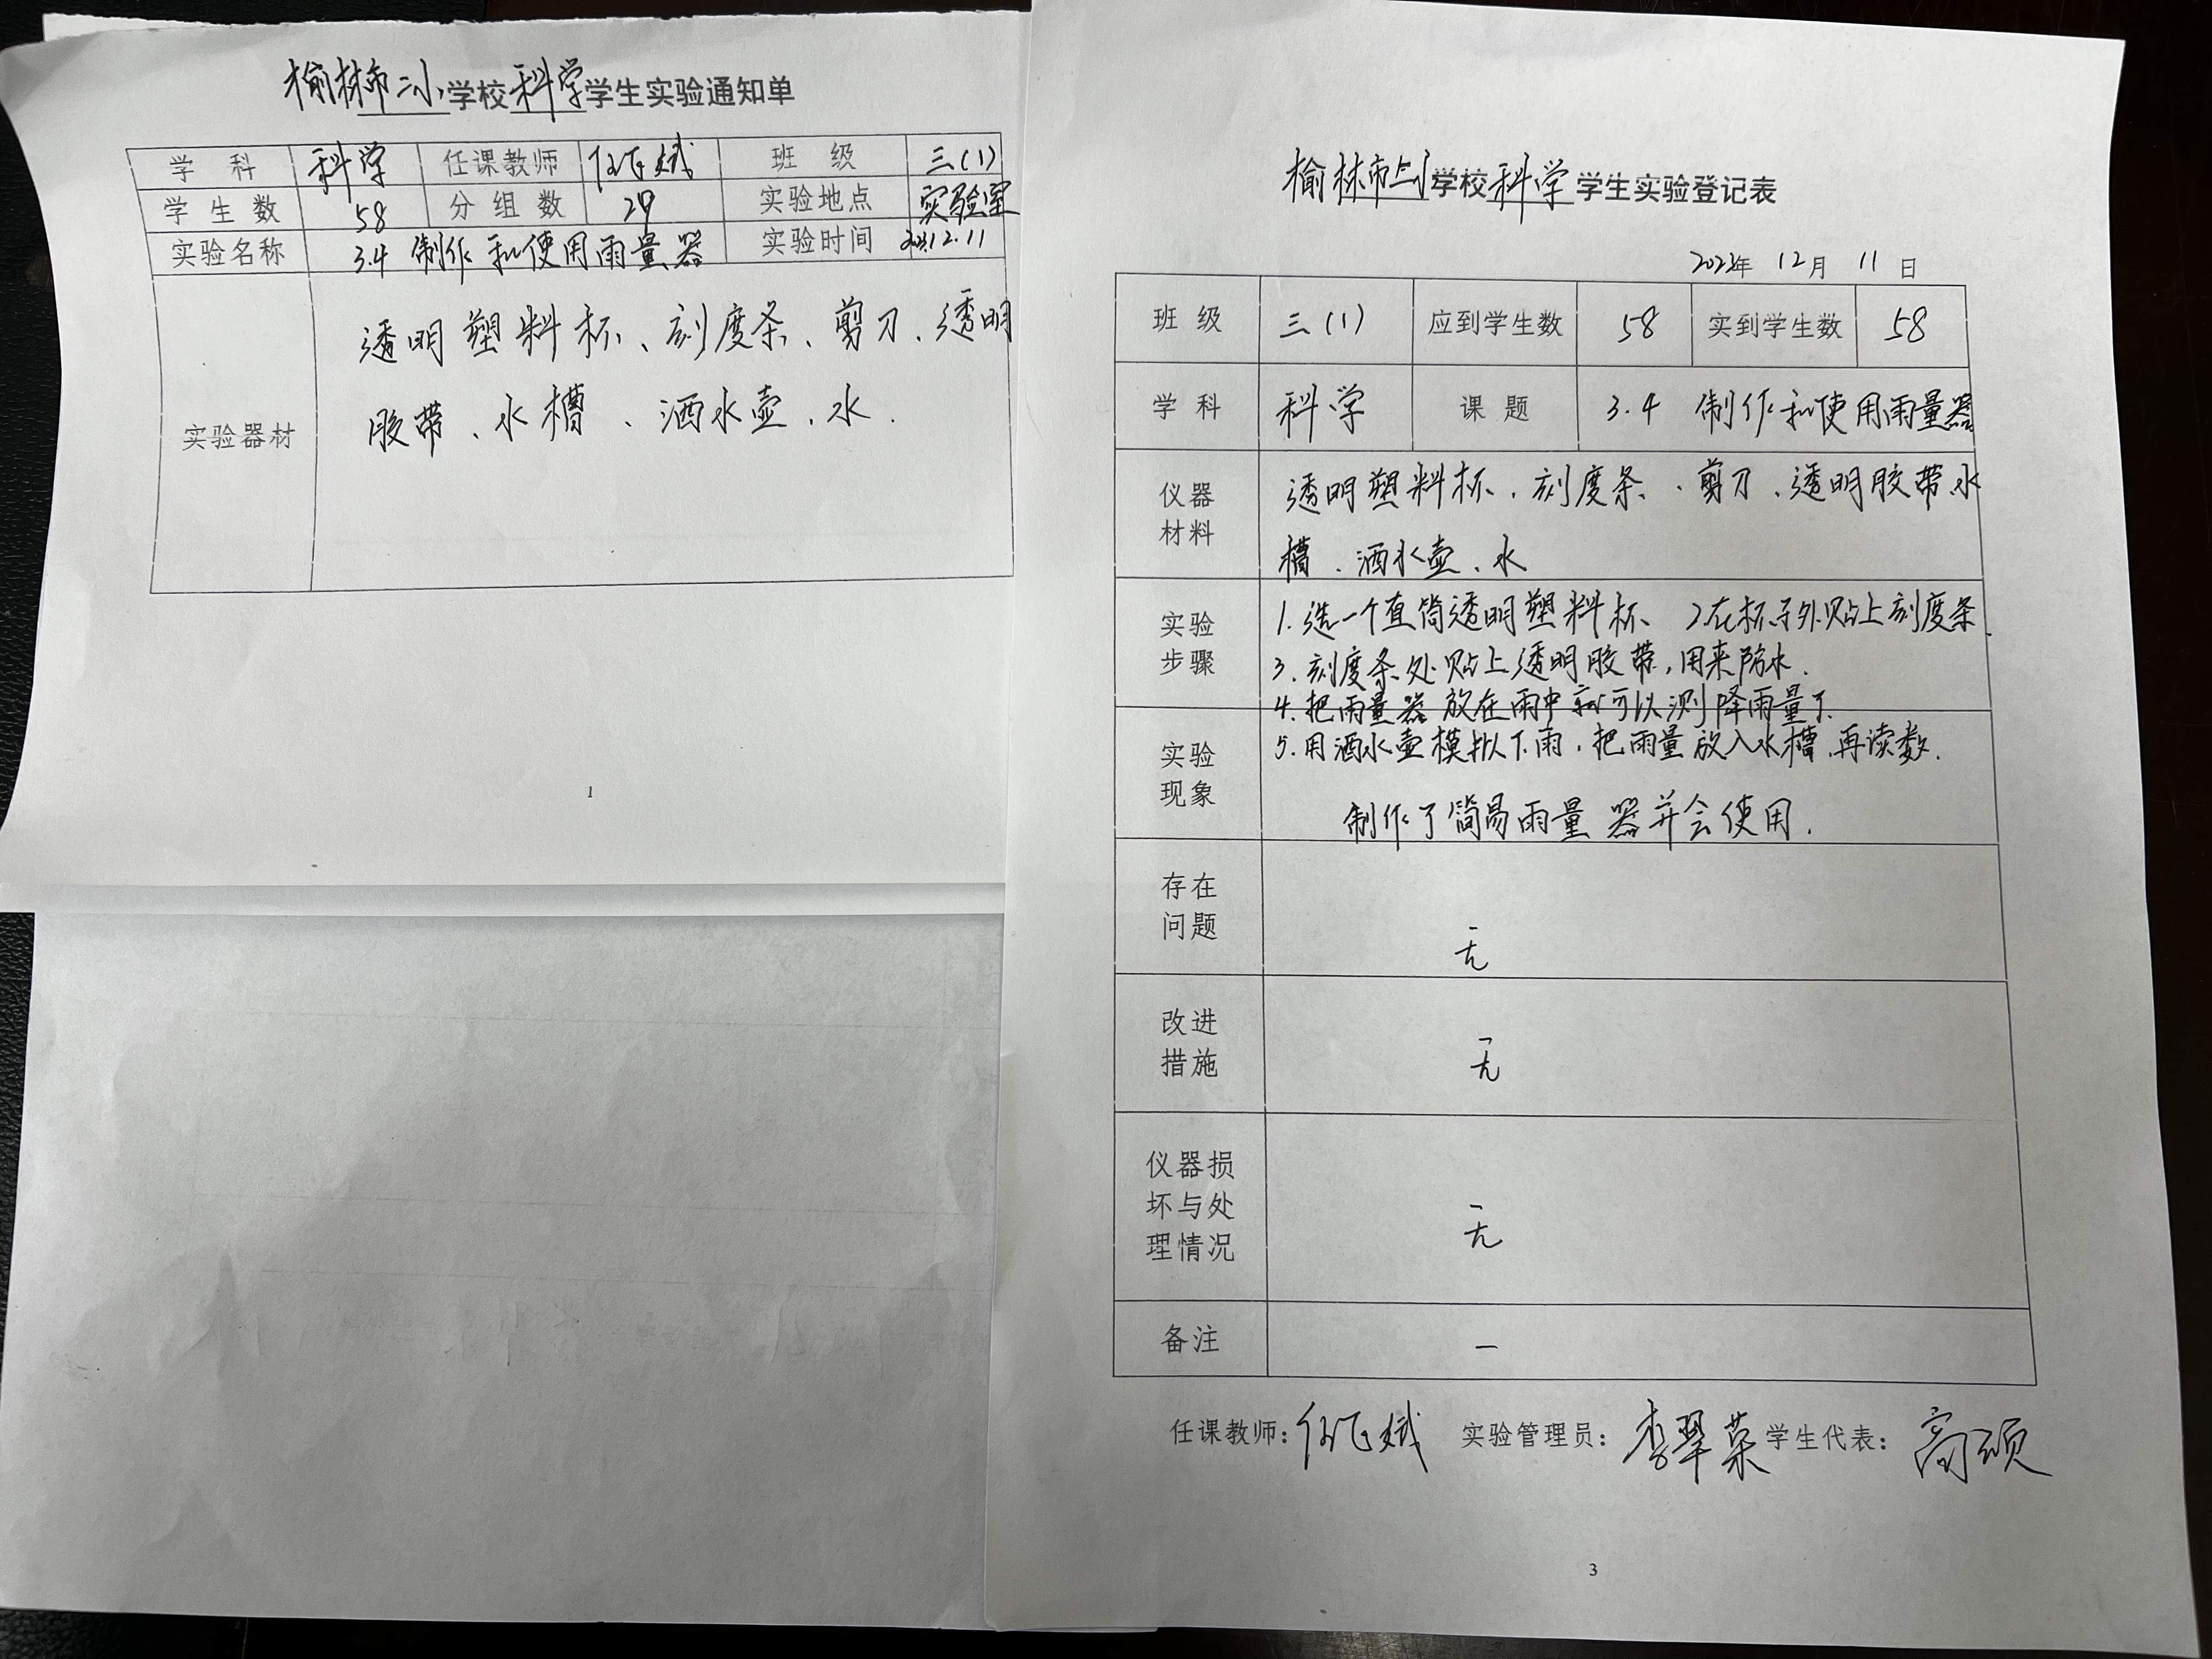 榆林市二小学校科学学生实验通知单
学 科 科学 任课教师 任飞斌 班 级 三(1)
学 生 数 58 分 组 数 29 实验地点 实验室
实验名称 3.4 制作和使用雨量器 实验时间 12.11
实验器材
透明塑料杯、刻度条、剪刀、透明
胶带、水槽、洒水壶、水.
1
榆林市二小学校科学学生实验登记表
2023年 12月 11日
班 级 三(1) 应到学生数 58 实到学生数 58
学 科 科学 课 题 3.4 制作和使用雨量器
仪器
材料
透明塑料杯、刻度条、剪刀、透明胶带、水
槽、洒水壶、水
实验
步骤
1.选一个直筒透明塑料杯 2在杯子外贴上刻度条.
3.刻度条处贴上透明胶带,用来防水.
4.把雨量器放在雨中就可以测降雨量了.
实验
现象
5.用洒水壶模拟下雨,把雨量放入水槽,再读数.
制作了简易雨量器并会使用.
存在
问题
无
改进
措施
无
仪器损
坏与处
理情况
无
备注 —
任课教师:任飞斌 实验管理员:李翠荣 学生代表:高硕
3